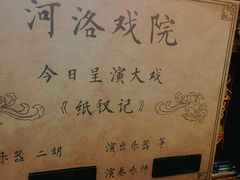 河洛戏院
今日呈演大戏
《纸钗记》
乐器 二胡 演出乐器 筝
演奏乐师